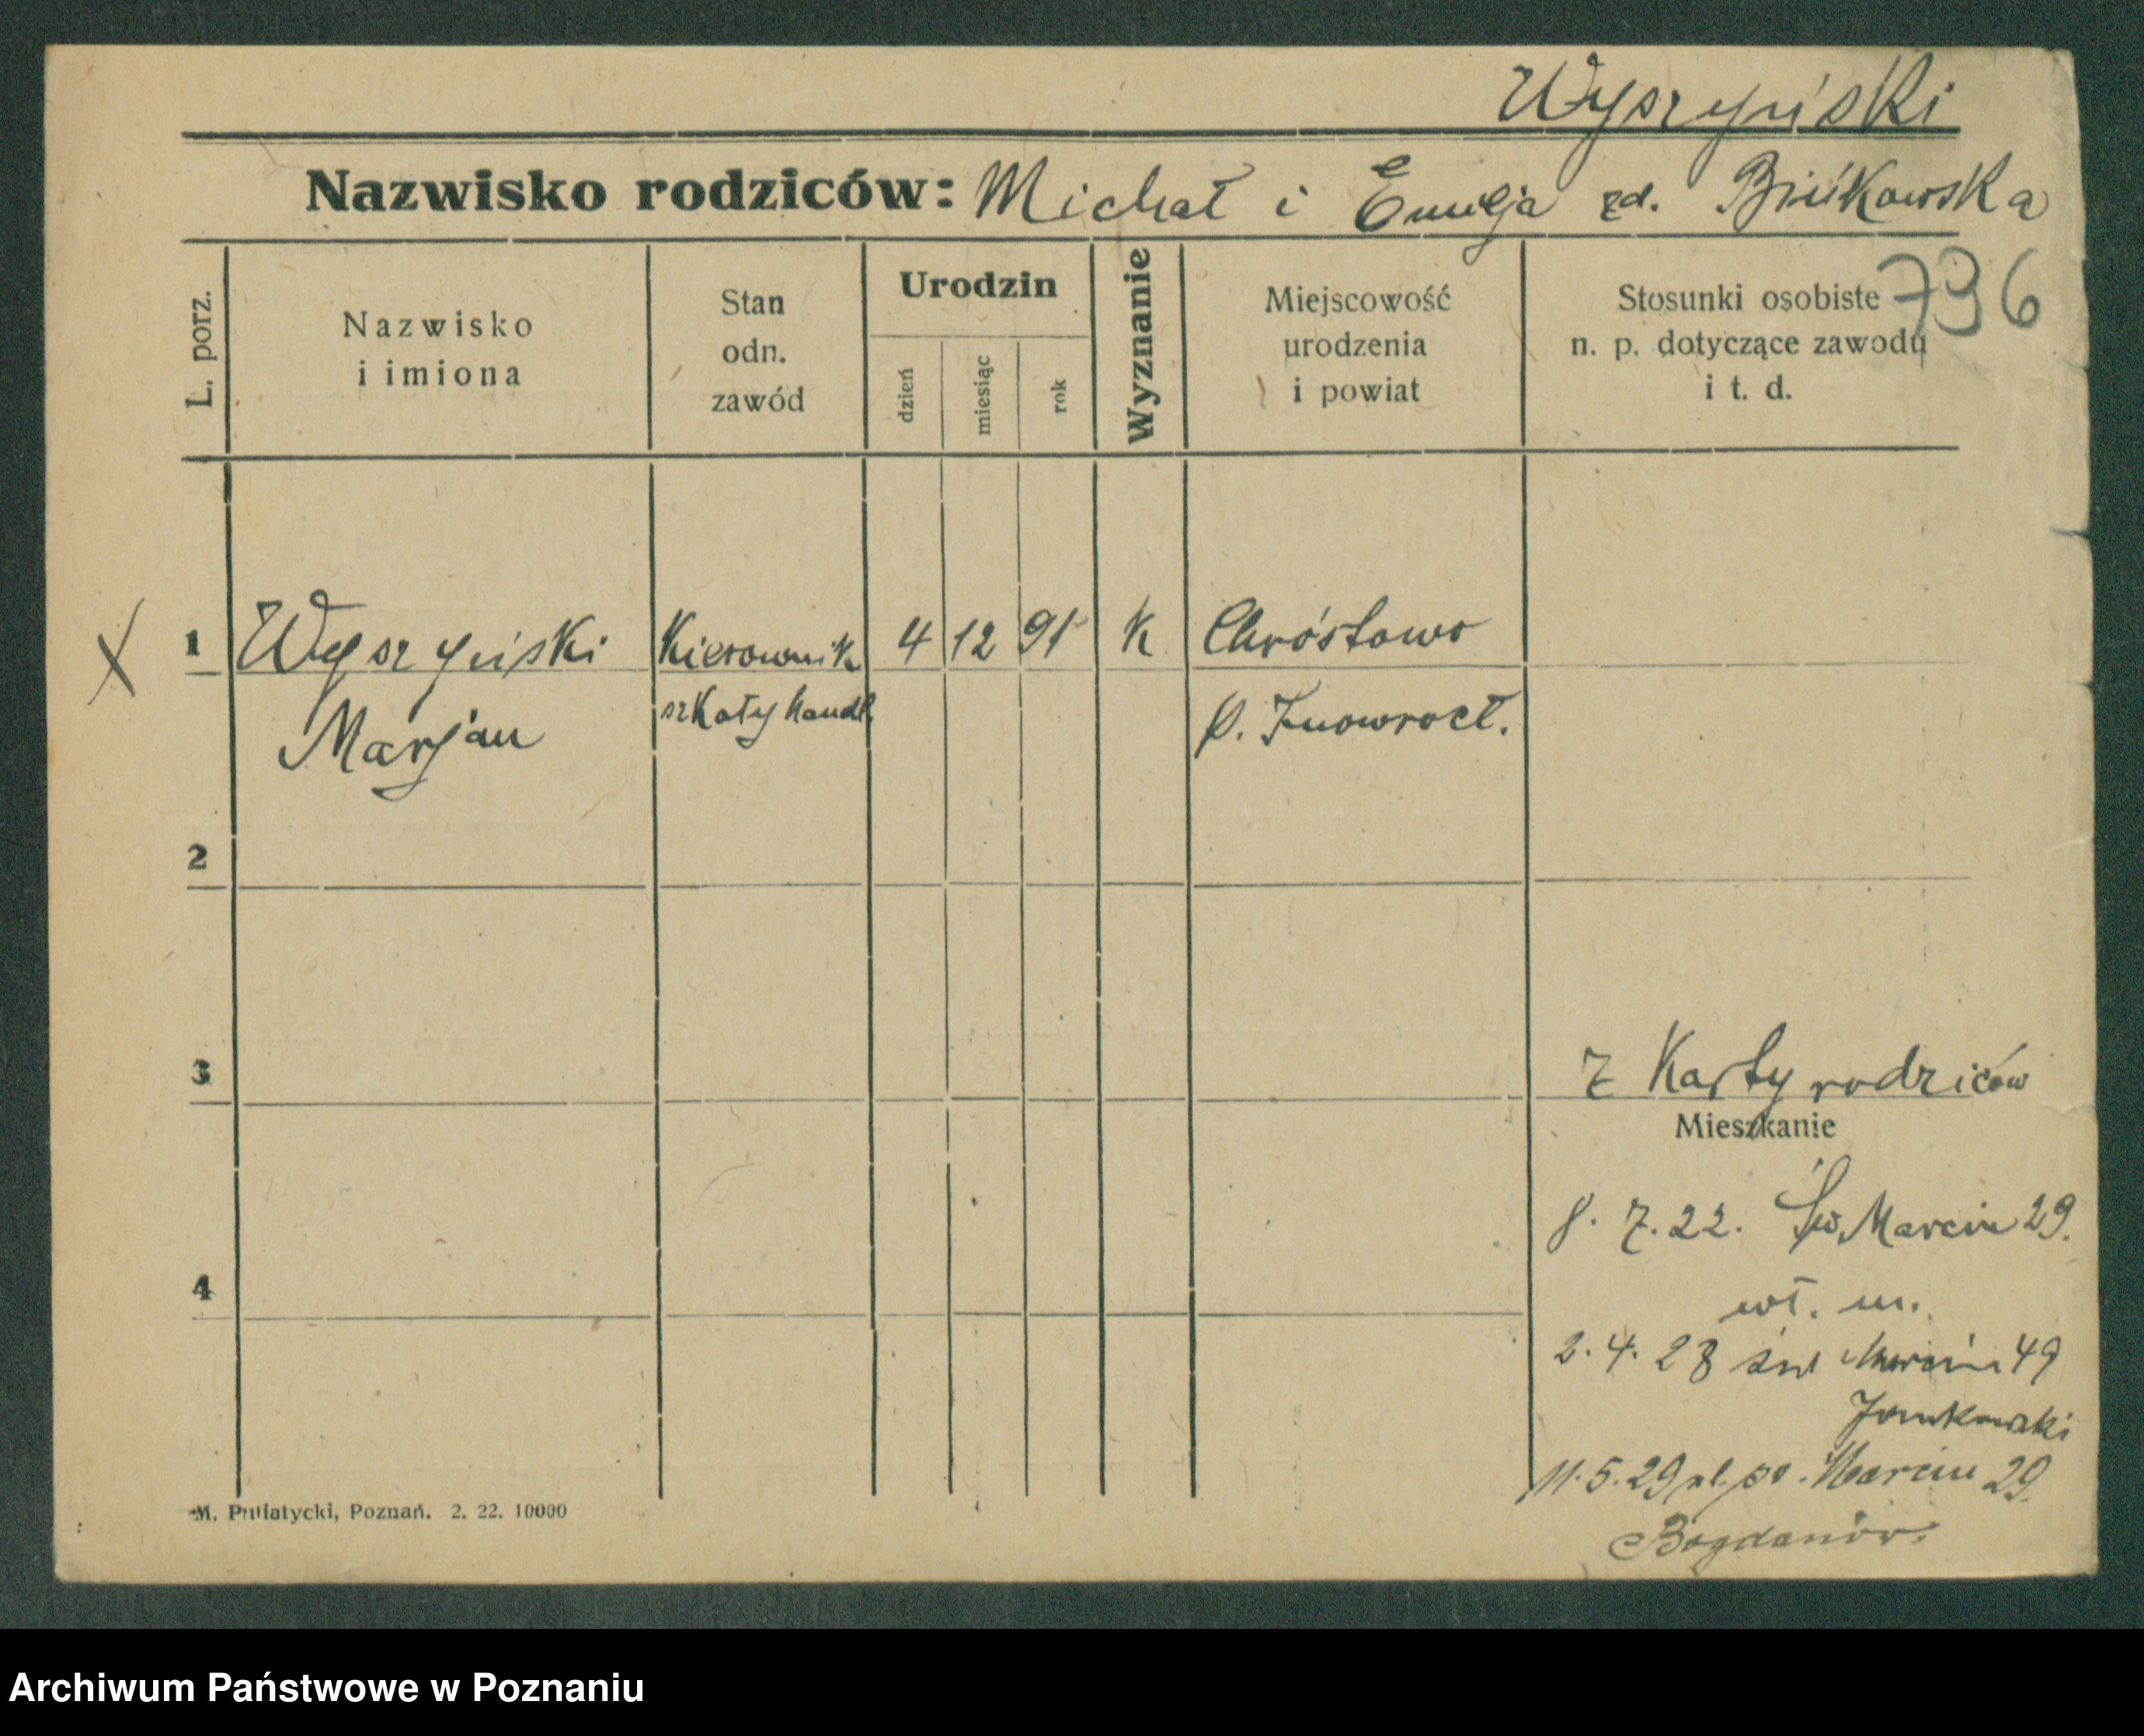 Wyszyński
Nazwisko rodziców: Michał i Emilja zd. Bińkowska
736
L. porz.
Nazwisko
i imiona
Stan
odn.
zawód
Urodzin
dzień
miesiąc
rok
Wyznanie
Miejscowość
urodzenia
i powiat
Stosunki osobiste
n. p. dotyczące zawodu
i t. d.
X 1 Wyszyński Kierownik 4 12 91 k Chróstowo
Marjan szkoły handl. p. Inowrocł.
2
3
Z Karty rodziców
Mieszkanie
8. 7. 22. Św. Marcin 29.
wł. m.
4
2. 4. 28 św Marcin 49
Jankowski
11. 5. 29 Marcin 29.
Bogdanów.
M. Putiatycki, Poznań. 2. 22. 10000
Archiwum Państwowe w Poznaniu